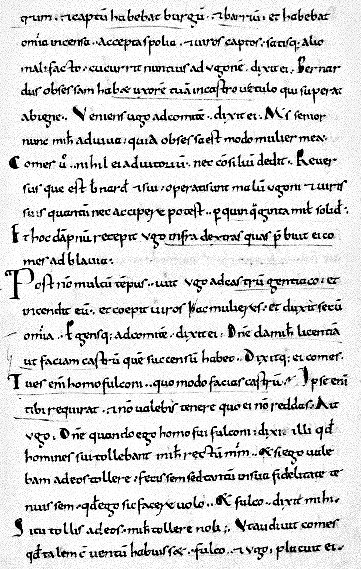 qum . & captū habebat burgū . & barriū . & habebat
omīa incensa . accepta spolia . & uiros captos . satisq; alio
male facto . cucurrit nuntius ad ugonē . dixit ei . Bernar
dus obsessam habæ uxorē tuā in castro uetulo qui superat
ab igne . Veniens ugo ad comitē . dixit ei . Ms senior
nunc mih adiuua . quia obsessa est modo mulier mea .
Comes ů . nihil ei adiutoriū . nec cōsiliū dedit . Reuer
susque est bnard & sui . operati sunt malū ugoni & uiris
suis quantū nec accipere potest . p quinquaginta mil solid .
Et hoc dāpnū recepit ugo infra dextras quas pbuit ei co
mes ad blauia .
Post nō multū tēpus . iuit ugo ad castrū gentiaco . &
incendit eū . & coepit uiros hac mulieres . & duxit secū
omīa . Pgensq; ad comitē . dixit ei . Dn̄e da mih licentiā
ut faciam castrū quē succensū habeo . Dixitq; ei comes .
Tu es enī homo fulconi . quo modo facias castrū . Ipse enī
tibi requirat . & nō ualebis tenere quo ei nō reddas . Ait
ugo . Dn̄e quando ego homo fui fulconi . dixi illi qđ
homines sui tollebant mih rectū mm̄ . & si ego uale
bam ad eos tollere . fecissem sed tantū in sua fidelitate te
nuissem . qđ ego sic facere uolo . & fulco . dixit mihi .
Si tu tollis ad eos . mih tollere noli . Vt audiuit comes
qđ talem cuentū habuissæ . fulco . & ugo . placuit ei .